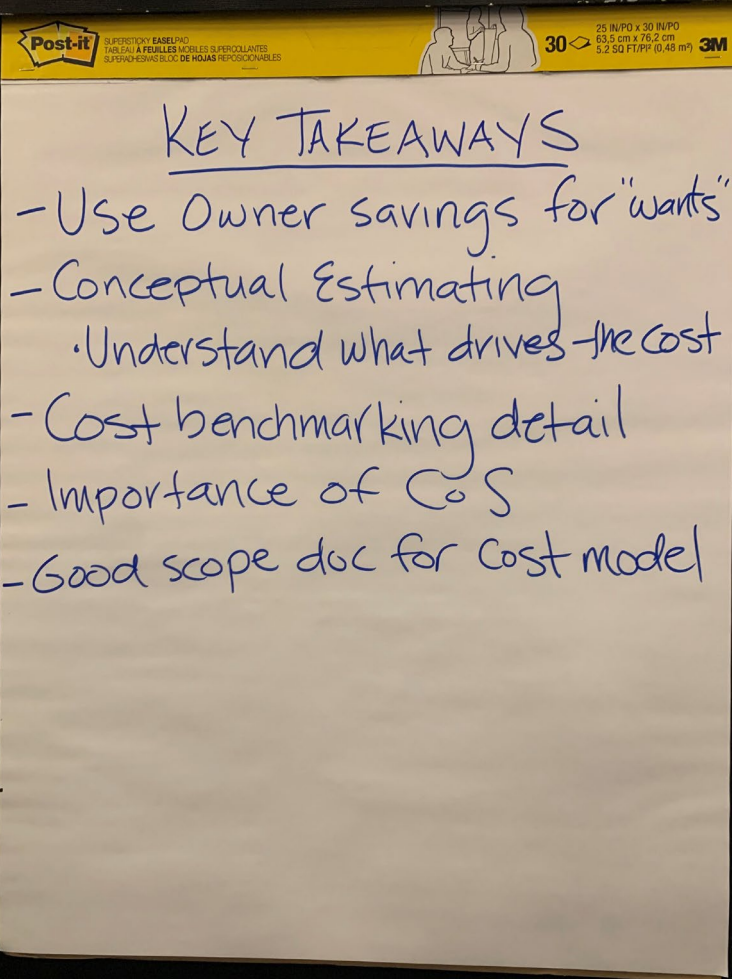 Post-it
SUPERSTICKY EASELPAD
TABLEAU À FEUILLES MOBILES SUPERCOLLANTES
SUPERADHESIVAS BLOC DE HOJAS REPOSICIONABLES
30
25 IN/PO x 30 IN/PO
63,5 cm x 76,2 cm
5.2 SQ FT/PI² (0,48 m²)
3M
KEY TAKEAWAYS
- Use Owner savings for "wants"
- Conceptual Estimating
· Understand what drives the cost
- Cost benchmarking detail
- Importance of CoS
- Good scope doc for cost model